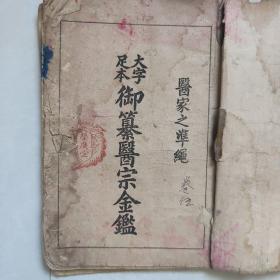 醫家之準繩
大字足本
御纂醫宗金鑑